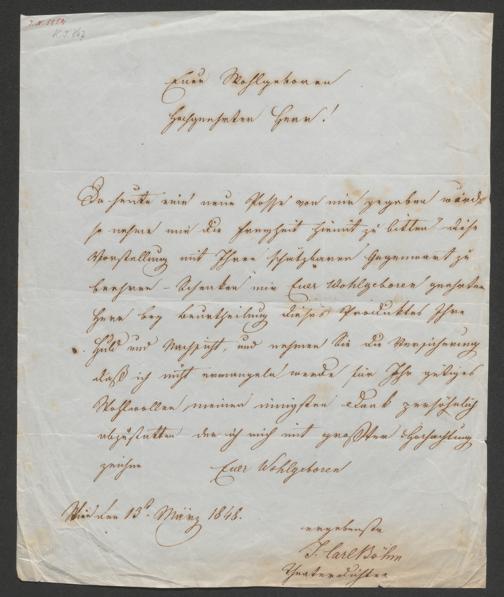 Euer Wohlgeboren
Hochgeehrter Herr!
Da heute eine neue Posse von mir gegeben würde
so nehme mir die Freyheit hiemit zu bitten diese
Vorstellung mit Ihrer schätzbaren Gegenwart zu
beehren – Schenken mir Euer Wohlgeboren geehrter
Herr bey Beurtheilung dieses Produktes Ihre
Huld und Nachsicht, und nehmen Sie die Versicherung
daß ich nicht ermangeln werde für Ihr gütiges
Wohlwollen meinen innigsten Dank persöhnlich
abzustatten der ich mich mit großter Hochachtung
zeichne Euer Wohlgeboren
Wien den 13t. März 1848.
ergebenster
J. Carl Böhm
Theaterdichter